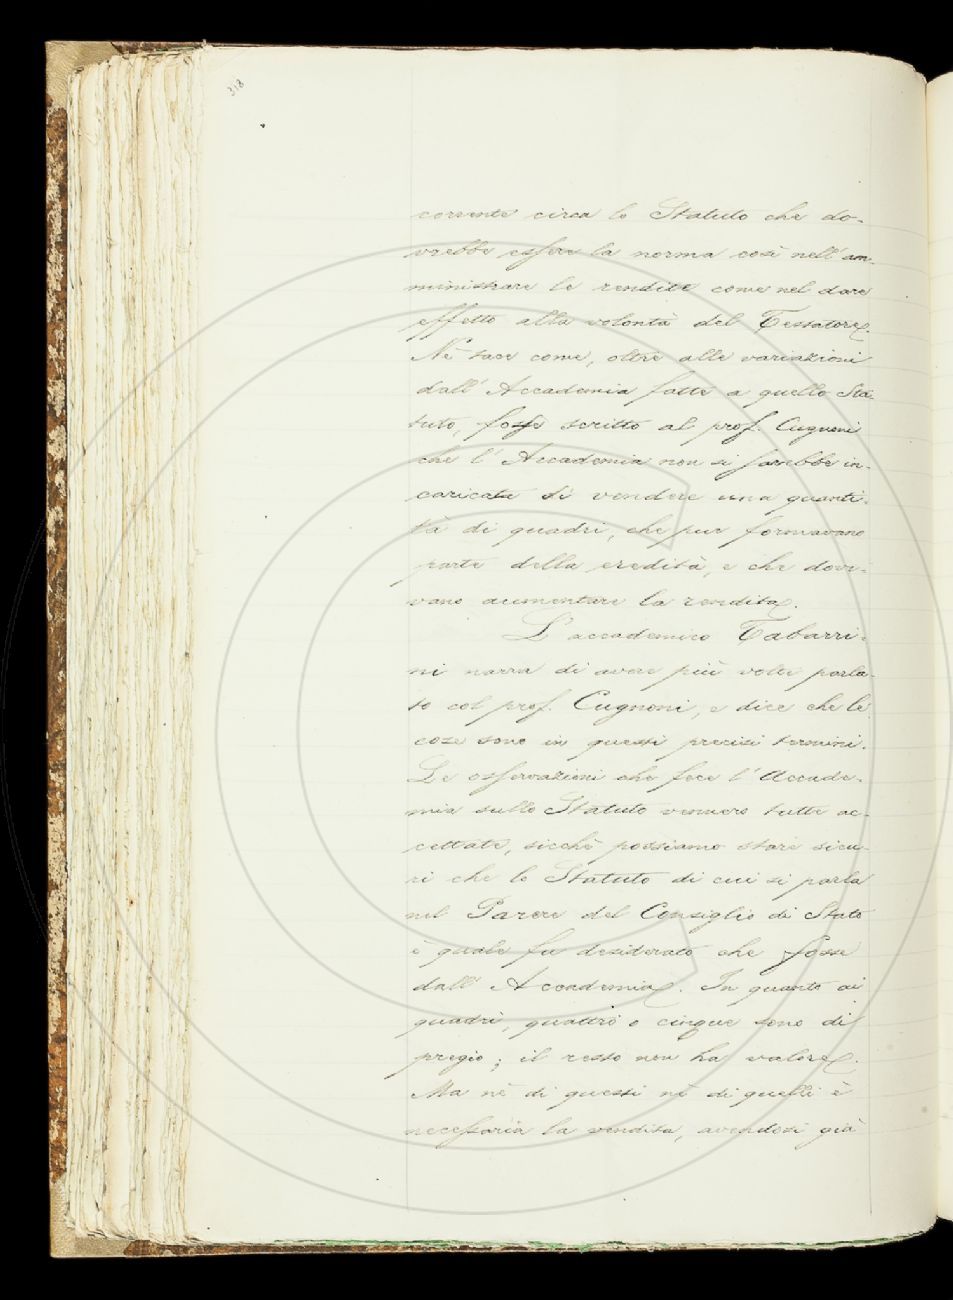 318
corrente circa lo Statuto che do-
vrebbe essere la norma così nell'am-
ministrare le rendite come nel dare
effetto alla volontà del Testatore.
Nè tace come, oltre alle variazioni
dall'Accademia fatte a quello Sta-
tuto, fosse scritto al prof. Cugnoni
che l'Accademia non si sarebbe in-
caricata di vendere una quanti-
tà di quadri, che pur formavano
parte della eredità, e che dove-
vano aumentare la rendita.
L'accademico Tabarri-
ni narra di aver più volte parla-
to col prof. Cugnoni, e dice che le
cose sono in questi precisi termini.
Le osservazioni che fece l'Accade-
mia sullo Statuto vennero tutte ac-
cettate, sicchè possiamo stare sicu-
ri che lo Statuto di cui si parla
nel Parere del Consiglio di Stato
è quale fu desiderato che fosse
dall'Accademia. In quanto ai
quadri, quattro o cinque sono di
pregio; il resto non ha valore.
Ma nè di questi nè di quelli è
necessaria la vendita, avendosi già